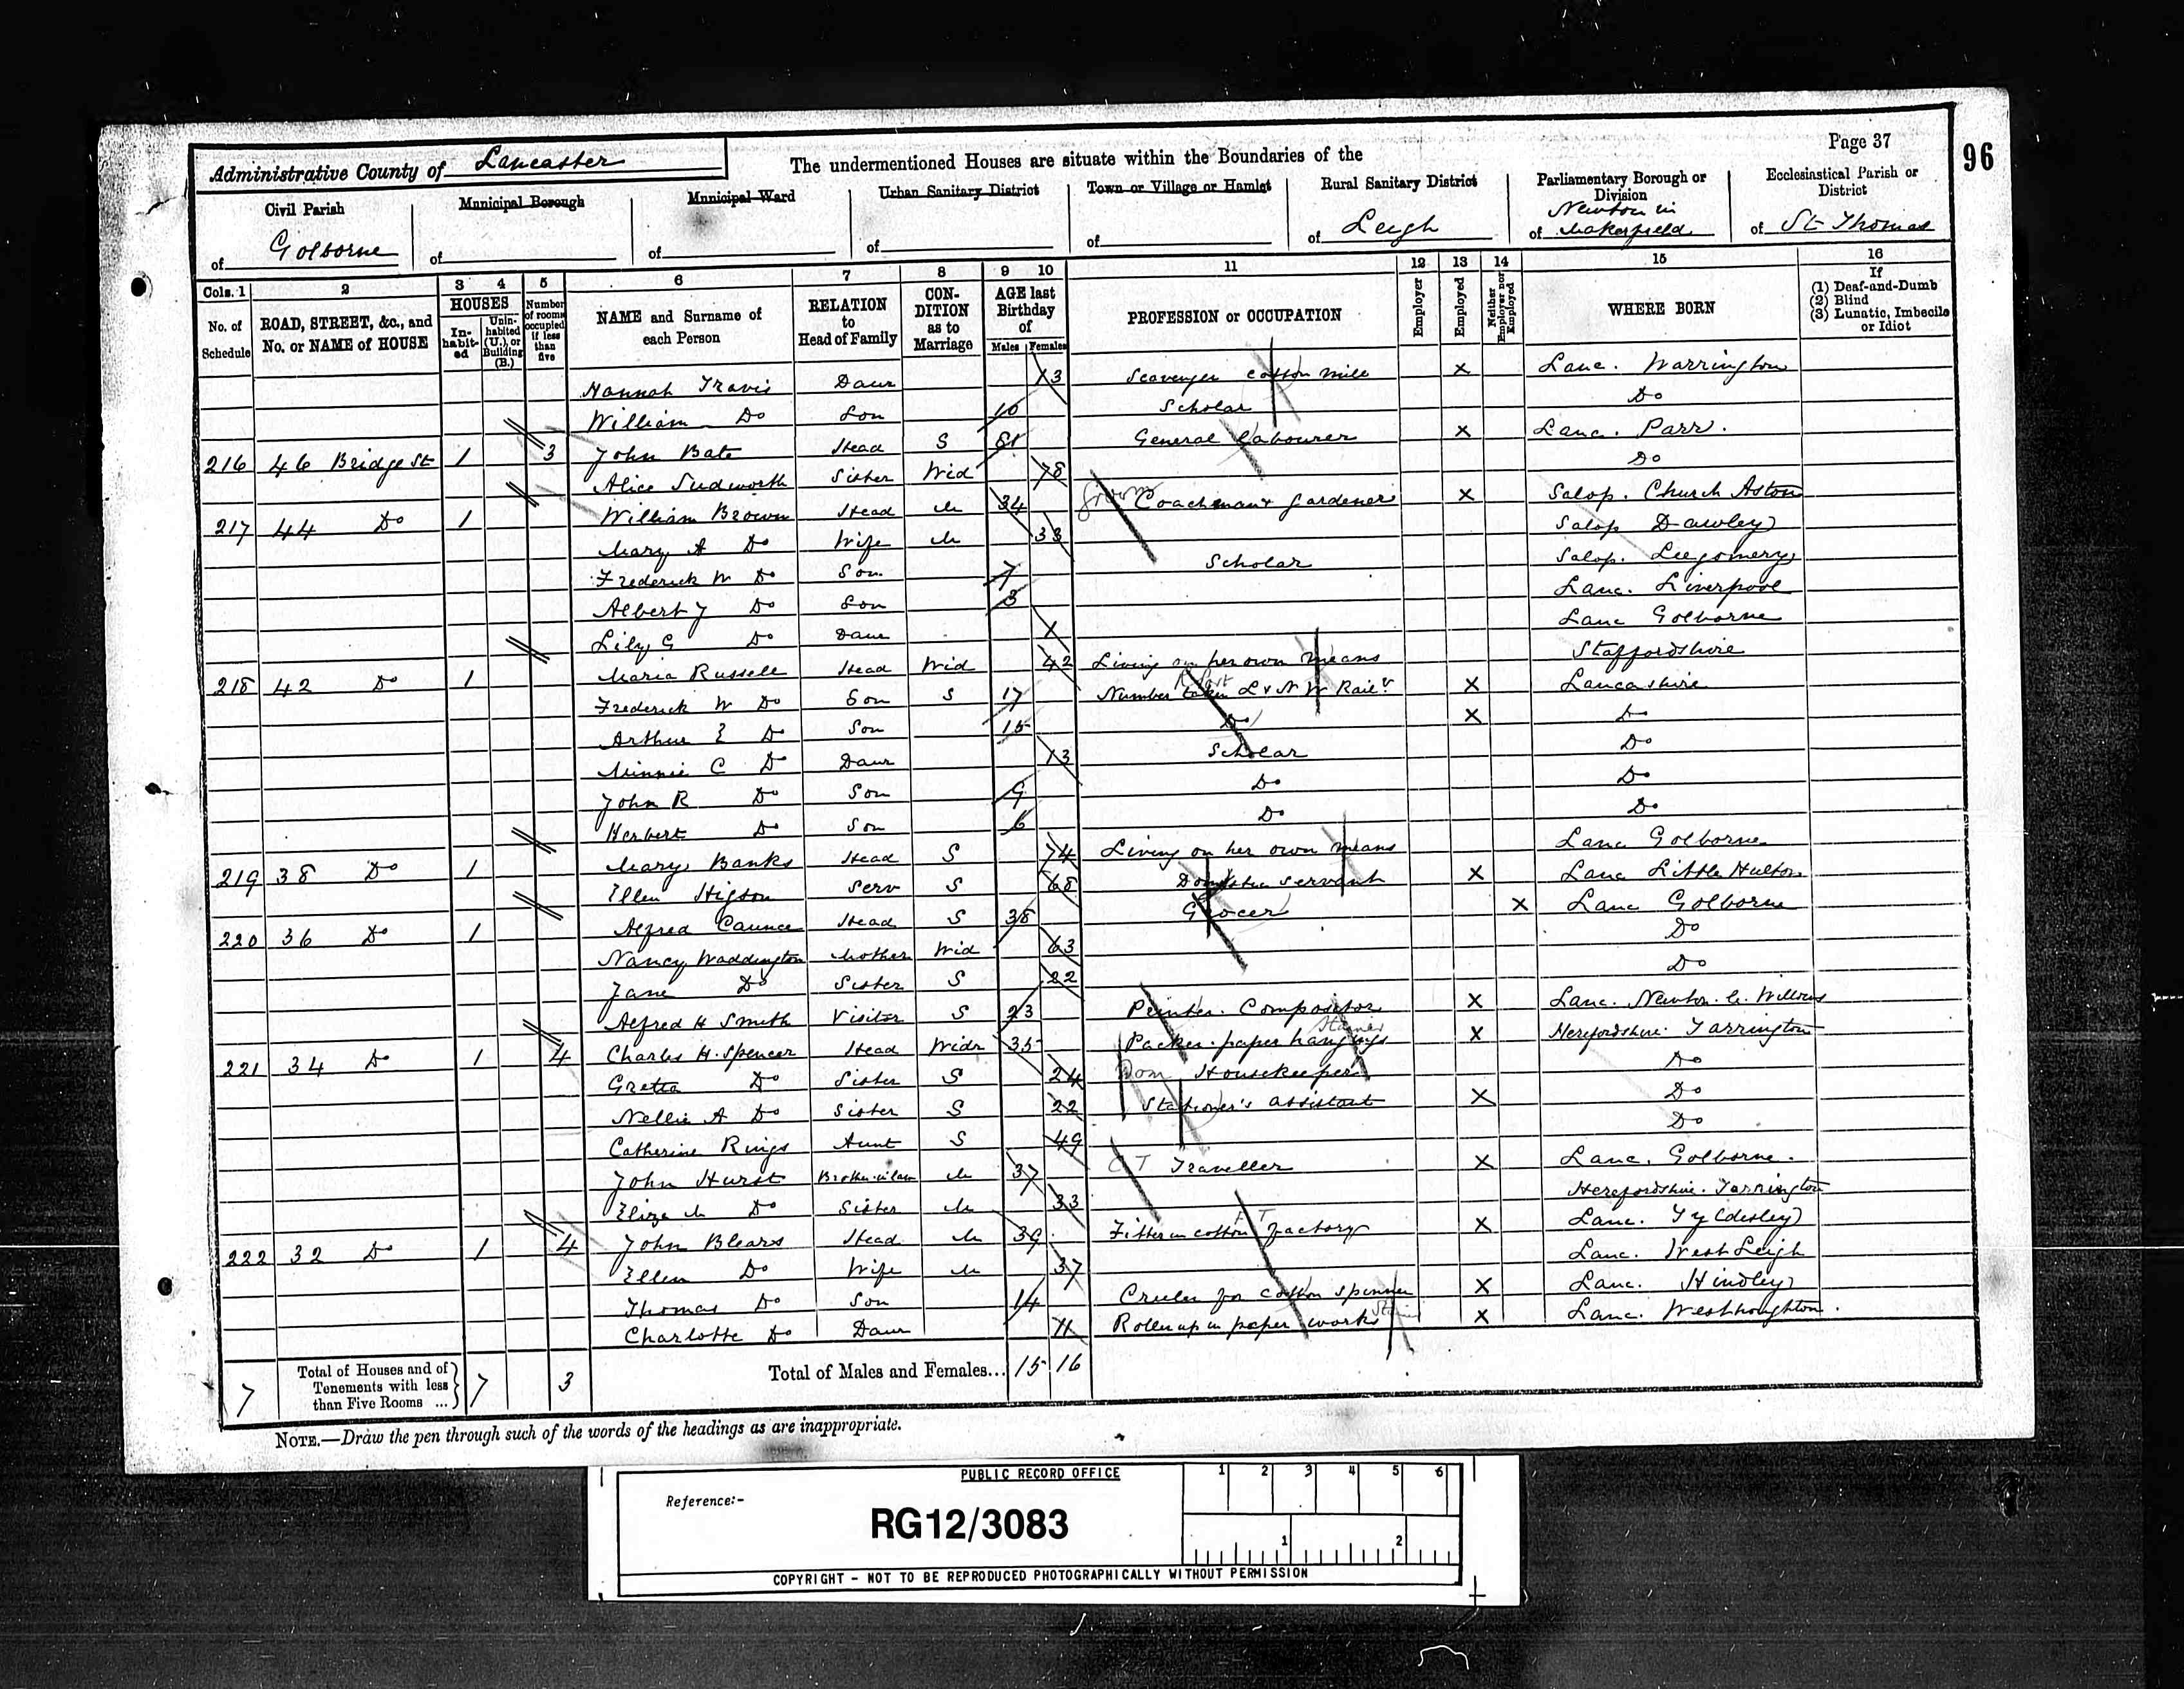 Page 37
96
Administrative County of Lancaster
The undermentioned Houses are situate within the Boundaries of the
Civil Parish of Golborne
Municipal Borough of
Municipal Ward of
Urban Sanitary District of
Town or Village or Hamlet of
Rural Sanitary District of Leigh
Parliamentary Borough or Division of Newton in Makerfield
Ecclesiastical Parish or District of St Thomas
Cols. 1 2 3 4 5 6 7 8 9 10 11 12 13 14 15 16
No. of Schedule
ROAD, STREET, &c., and No. or NAME of HOUSE
HOUSES
In-habit-ed
Unin-habited (U.), or Building (B.)
Number of rooms occupied if less than five
NAME and Surname of each Person
RELATION to Head of Family
CON-DITION as to Marriage
AGE last Birthday of
Males Females
PROFESSION or OCCUPATION
Employer
Employed
Neither Employer nor Employed
WHERE BORN
If (1) Deaf-and-Dumb (2) Blind (3) Lunatic, Imbecile or Idiot
Hannah Travis Daur 13 Scavenger Cotton Mill X Lanc. Warrington
William Do Son 10 Scholar Do
216 46 Bridge St 1 3 John Bate Head S 81 General Labourer X Lanc. Parr.
Alice Sudworth Sister Wid 78 Do
217 44 Do 1 William Brown Head M 34 Groom Coachman & Gardener X Salop. Church Aston
Mary A Do Wife M 33 Salop Dawley
Frederick W Do Son 7 Scholar Salop. Leegomery
Albert J Do Son 3 Lanc. Liverpool
Lily G Do Daur 1 Lanc Golborne
218 42 Do 1 Maria Russell Head Wid 42 Living on her own means Staffordshire
Frederick W Do Son S 17 Number taker L & N W Railr X Lancashire
Arthur E Do Son 15 Do X Do
Minnie C Do Daur 13 Scholar Do
John R Do Son 9 Do Do
Herbert Do Son 6 Do Do
219 38 Do 1 Mary Banks Head S 74 Living on her own means Lanc Golborne
Ellen Higson Serv S 68 Domestic Servant X Lanc Little Hulton
220 36 Do 1 Alfred Caunce Head S 38 Grocer X Lanc Golborne
Nancy Waddington Mother Wid 63 Do
Jane Do Sister S 22 Do
Alfred H Smith Visitor S 23 Printer. Compositor X Lanc. Newton. le. Willows
221 34 Do 1 4 Charles H. Spencer Head Widr 35 Packer. paper hangings Stainer X Herefordshire. Tarrington
Gretta Do Sister S 24 Dom Housekeeper Do
Nellie A Do Sister S 22 Stationer's Assistant X Do
Catherine Rings Aunt S 49 Do
John Hurst Brother-in-law M 37 C T Traveller X Lanc. Golborne.
Eliza M Do Sister M 33 Herefordshire. Tarrington
222 32 Do 1 4 John Blears Head M 39 Fitter in Cotton Factory X Lanc. Tyldesley
Ellen Do Wife M 37 Lanc. West Leigh
Thomas Do Son 14 Creeler for Cotton Spinner X Lanc. Hindley
Charlotte Do Daur 11 Roller up in paper works X Lanc. Westhoughton.
7 Total of Houses and of Tenements with less than Five Rooms ... 7 3 Total of Males and Females... 15 16
NOTE.—Draw the pen through such of the words of the headings as are inappropriate.
PUBLIC RECORD OFFICE
1 2 3 4 5 6
Reference:-
RG12/3083
1 2
COPYRIGHT - NOT TO BE REPRODUCED PHOTOGRAPHICALLY WITHOUT PERMISSION